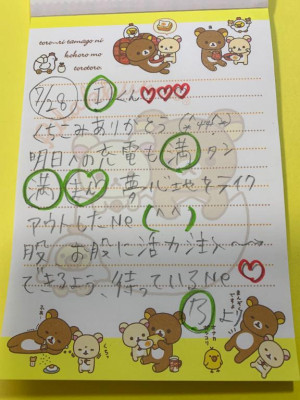 tore~ri tamago ni
kokoro mo
torotoro.
7/28 くん♡♡♡
くちこみありがとう
明日への充電も満タン
満まん夢心地をテイク
アウトしたNe (^^)
股、お股に活力注入〜〜
できるよう、待っているNe♡
より